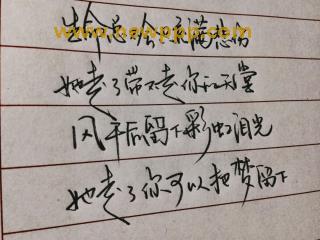 生命总会充满悲伤
www.newppp.com
她走了带不走你的天堂
风干后留下彩虹泪光
她走了你可以把梦留下